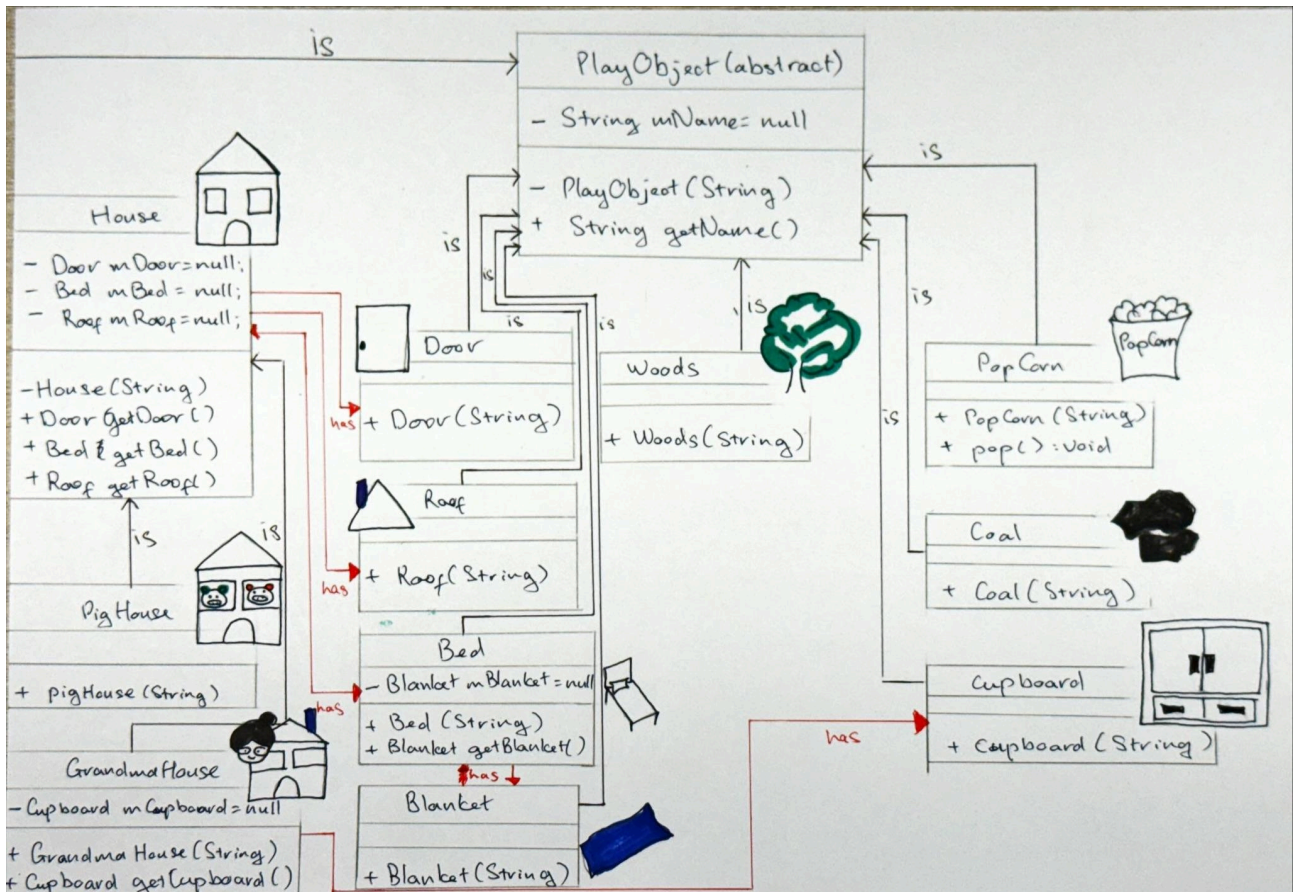 is
PlayObject (abstract)
- String mName = null
- PlayObject (String)
+ String getName()
is
House
- Door mDoor = null;
- Bed mBed = null;
- Roof mRoof = null;
- House (String)
+ Door getDoor()
+ Bed getBed()
+ Roof getRoof()
is
is
PigHouse
+ pigHouse (String)
GrandmaHouse
- Cupboard mCupboard = null
+ GrandmaHouse (String)
+ Cupboard getCupboard()
is
is
is
is
Door
+ Door (String)
has
Roof
+ Roof (String)
has
Bed
- Blanket mBlanket = null
+ Bed (String)
+ Blanket getBlanket()
has
has
Blanket
+ Blanket (String)
is
Woods
+ Woods (String)
is
is
PopCorn
PopCorn
+ PopCorn (String)
+ pop() : void
Coal
+ Coal (String)
Cupboard
+ Cupboard (String)
has